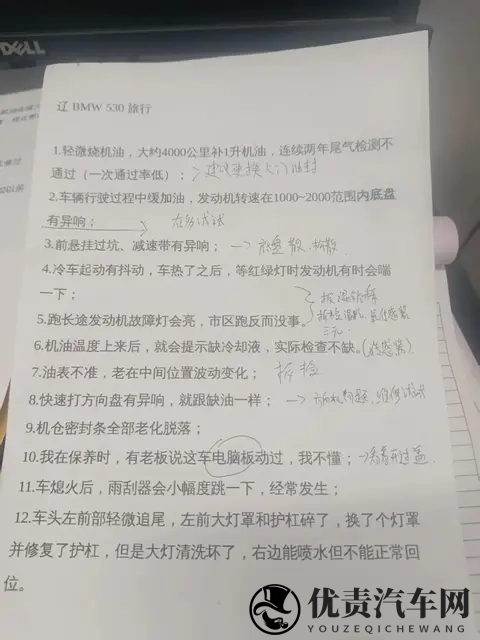 DELL
辽 BMW 530 旅行
1.轻微烧机油，大约4000公里补1升机油，连续两年尾气检测不
通过（一次通过率低）；> 建议更换气门油封
2.车辆行驶过程中缓加油，发动机转速在1000~2000范围内底盘
有异响； 在多试试
3.前悬挂过坑、减速带有异响； 底盘散
4.冷车起动有抖动，车热了之后，等红绿灯时发动机有时会喘
一下；
5.跑长途发动机故障灯会亮，市区跑反而没事。
三元
6.机油温度上来后，就会提示缺冷却液，实际检查不缺。(传感器)
7.油表不准，老在中间位置波动变化； 拆检
8.快速打方向盘有异响，就跟缺油一样； 方向机问题，维修试试
9.机仓密封条全部老化脱落；
10.我在保养时，有老板说这车电脑板动过，我不懂；
11.车熄火后，雨刮器会小幅度跳一下，经常发生；
12.车头左前部轻微追尾，左前大灯罩和护杠碎了，换了个灯罩
并修复了护杠，但是大灯清洗坏了，右边能喷水但不能正常回
位。
优责汽车网
YOUZEQICHEWANG